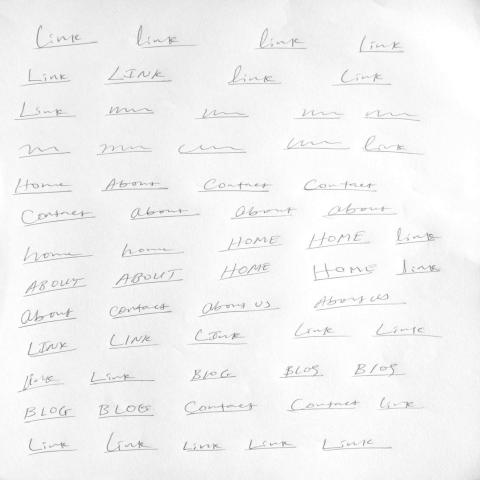 Link link link Link
Link LINK link Link
Link
link
Home About Contact Contact
Contact about about about
home home HOME HOME link
ABOUT ABOUT HOME HOME link
About contact About us About us
LINK LINK Link Link Link
link Link BLOG BLOG BLOG
BLOG BLOG Contact Contact link
Link Link Link Link Link